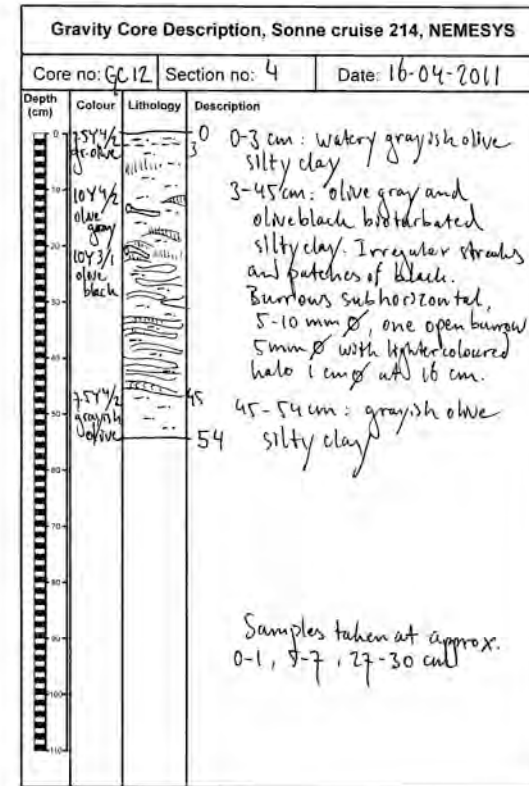 Gravity Core Description, Sonne cruise 214, NEMESYS
Core no: GC12 Section no: 4 Date: 16-04-2011
Depth (cm) Colour Lithology Description
0
3
45
54
7.5Y4/2
gr. olive
10Y4/2
olive
gray
10Y3/1
olive
black
7.5Y4/2
grayish
olive
0-3 cm: watery grayish olive
silty clay
3-45 cm: olive gray and
olive black bioturbated
silty clay. Irregular streaks
and patches of black.
Burrows subhorizontal,
5-10 mm Ø, one open burrow
5mm Ø with lighter coloured
halo 1 cm Ø at 16 cm.
45-54 cm: grayish olive
silty clay
Samples taken at approx.
0-1, 5-7, 27-30 cm
0
10
20
30
40
50
60
70
80
90
100
110